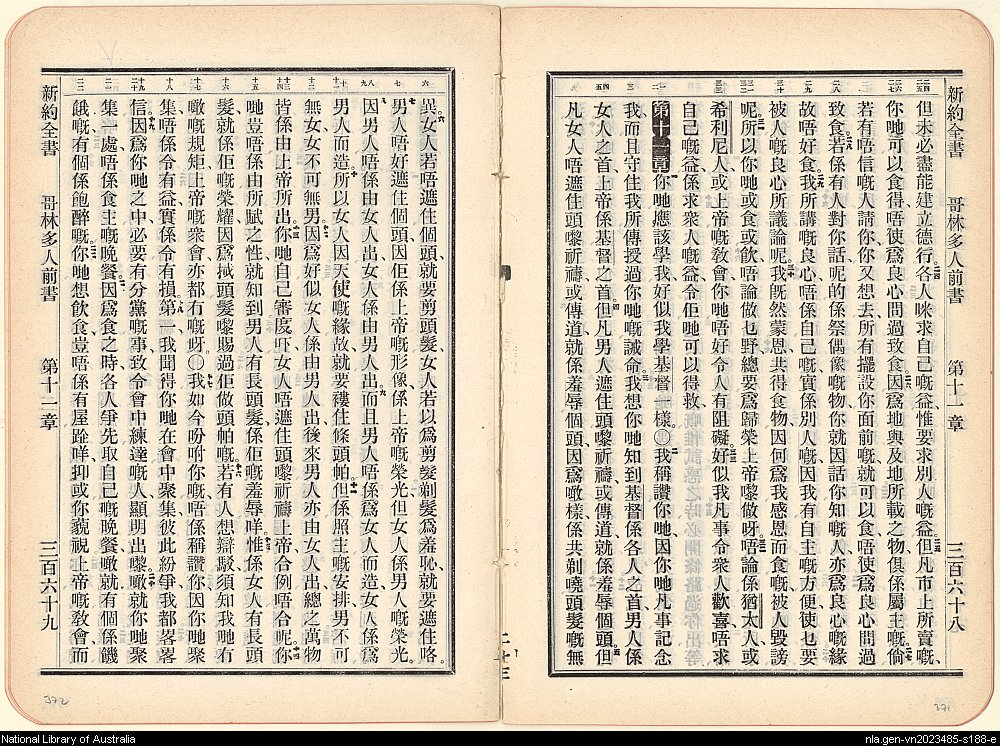 新約全書 哥林多人前書 第十一章 三百六十八
但未必盡能建立德行各人咪求自己嘅益惟要求別人嘅益但凡巿上所賣嘅
你哋可以食得唔使爲良心問過致食因爲地與及地所載之物俱係屬主嘅倘
若有唔信嘅人請你你又想去所有擺設你面前嘅就可以食唔使爲良心問過
致食若係有人對你話呢的係祭偶像嘅物你就因話你知嘅人亦爲良心嘅緣
故唔好食我所講嘅良心唔係自己嘅實係別人嘅因我有自主嘅方便使乜要
被人嘅良心所議論呢我旣然蒙恩共得食物因何爲我感恩而食嘅被人毀謗
呢所以你哋或食或飲唔論做乜野總要爲歸榮上帝嚟做呀唔論係猶太人或
希利尼人或上帝嘅敎會你哋唔好令人有阻礙好似我凡事令衆人歡喜唔求
自己嘅益係求衆人嘅益令佢哋可以得救
第十一章 你哋應該學我好似我學基督一樣〇我稱讚你哋因你哋凡事記念
我而且守住我所傳授過你哋嘅誡命我想你哋知到基督係各人之首男人係
女人之首上帝係基督之首但凡男人遮住頭嚟祈禱或傳道就係羞辱個頭但
凡女人唔遮住頭嚟祈禱或傳道就係羞辱個頭因爲噉樣係共剃曉頭髮嘅無
二十三
異女人若唔遮住個頭就要剪頭髮女人若以爲剪髮剃髮爲羞恥就要遮住咯
男人唔好遮住個頭因佢係上帝嘅形像係上帝嘅榮光但女人係男人嘅榮光
因男人唔係由女人出女人係由男人出而且男人唔係爲女人而造女人係爲
男人而造所以女人因天使嘅緣故就要褸住條頭帕但係照主嘅安排男不可
無女女不可無男因爲好似女人係由男人出後來男人亦由女人出總之萬物
皆係由上帝所出你哋自己審度吓女人唔遮住頭嚟祈禱上帝合例唔合呢你
哋豈唔係由所賦之性就知到男人有長頭髮係佢嘅羞辱咩惟係女人有長頭
髮就係佢嘅榮耀因爲𢫏頭髮嚟賜過佢做頭帕嘅若有人想辯駁須知我哋有
噉嘅規矩上帝嘅衆會亦都冇嘅呀〇我如今吩咐你嘅唔係稱讚你因你哋聚
集唔係令有益實係令有損第一我聞得你哋在會中聚集彼此紛爭我都畧畧
信因爲你哋之中必要有分黨嘅事致令會中練達嘅人顯明出嚟噉就你哋聚
集一處唔係食主嘅晚餐因爲食之時各人爭先取自己嘅晚餐噉就有個係饑
餓嘅有個係飽醉嘅你哋想飲食豈唔係有屋跧咩抑或你藐視上帝嘅敎會而
新約全書 哥林多人前書 第十一章 三百六十九
372
371
National Library of Australia
nla.gen-vn2023485-s188-e